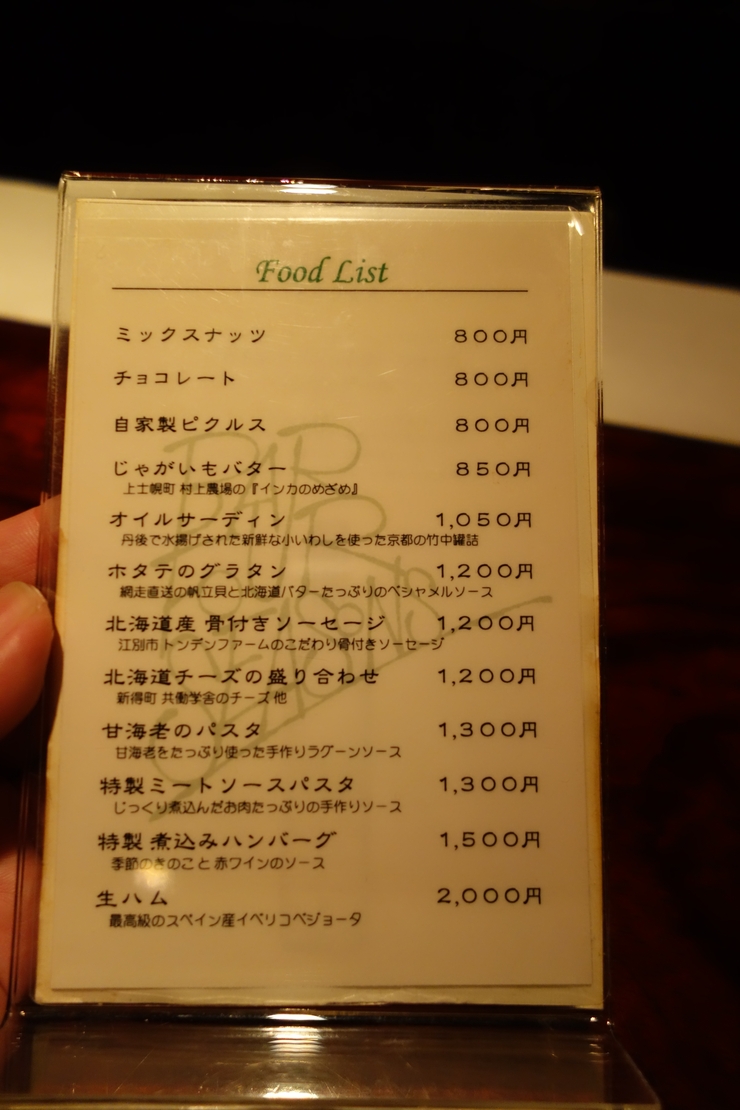 Food List
ミックスナッツ 800円
チョコレート 800円
自家製ピクルス 800円
じゃがいもバター 850円
上士幌町 村上農場の『インカのめざめ』
オイルサーディン 1,050円
丹後で水揚げされた新鮮な小いわしを使った京都の竹中罐詰
ホタテのグラタン 1,200円
網走直送の帆立貝と北海道バターたっぷりのベシャメルソース
北海道産 骨付きソーセージ 1,200円
江別市 トンデンファームのこだわり骨付きソーセージ
北海道チーズの盛り合わせ 1,200円
新得町 共働学舎のチーズ 他
甘海老のパスタ 1,300円
甘海老をたっぷり使った手作りラグーンソース
特製ミートソースパスタ 1,300円
じっくり煮込んだお肉たっぷりの手作りソース
特製 煮込みハンバーグ 1,500円
季節のきのこと 赤ワインのソース
生ハム 2,000円
最高級のスペイン産イベリコベジョータ
BAR